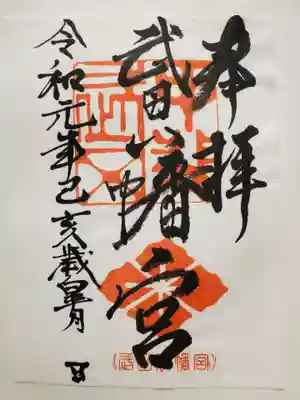 奉拝
武田八幡宮
令和元年己亥歳皐月 日
武田八幡宮